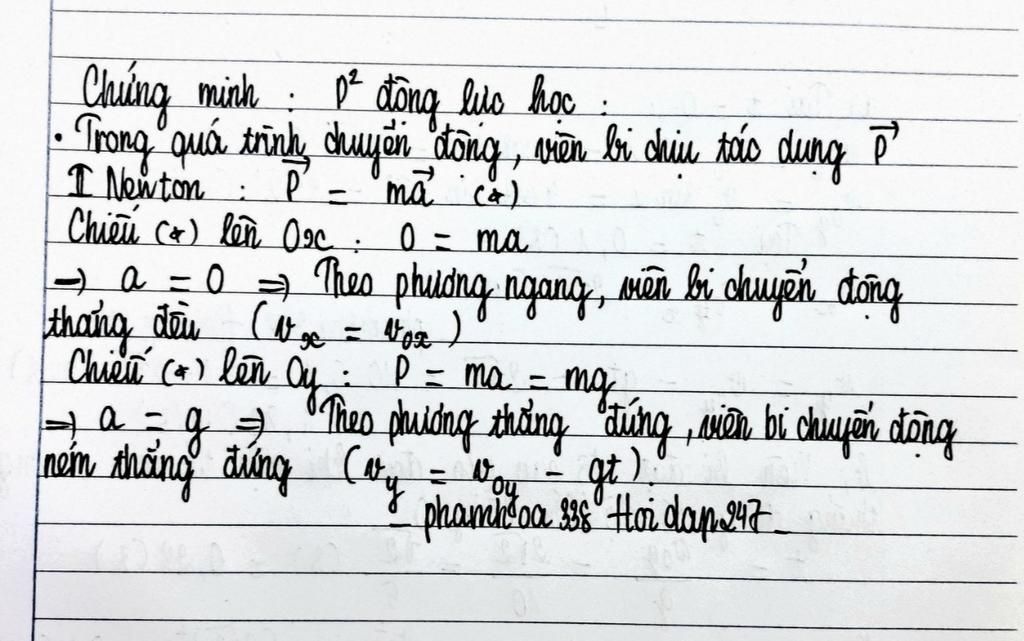 Chứng minh : P² động lực học :
• Trong quá trình chuyển động, viên bi chịu tác dụng P⃗
II Newton : P⃗ = ma⃗ (*)
Chiếu (*) lên Ox : 0 = ma
→ a = 0 ⇒ Theo phương ngang, viên bi chuyển động
thẳng đều (vₓ = v₀ₓ)
Chiếu (*) lên Oy : P = ma = mg
⇒ a = g ⇒ Theo phương thẳng đứng, viên bi chuyển động
ném thẳng đứng (v_y = v_oy - gt).
- phamhoa 338 Hoidap247 -